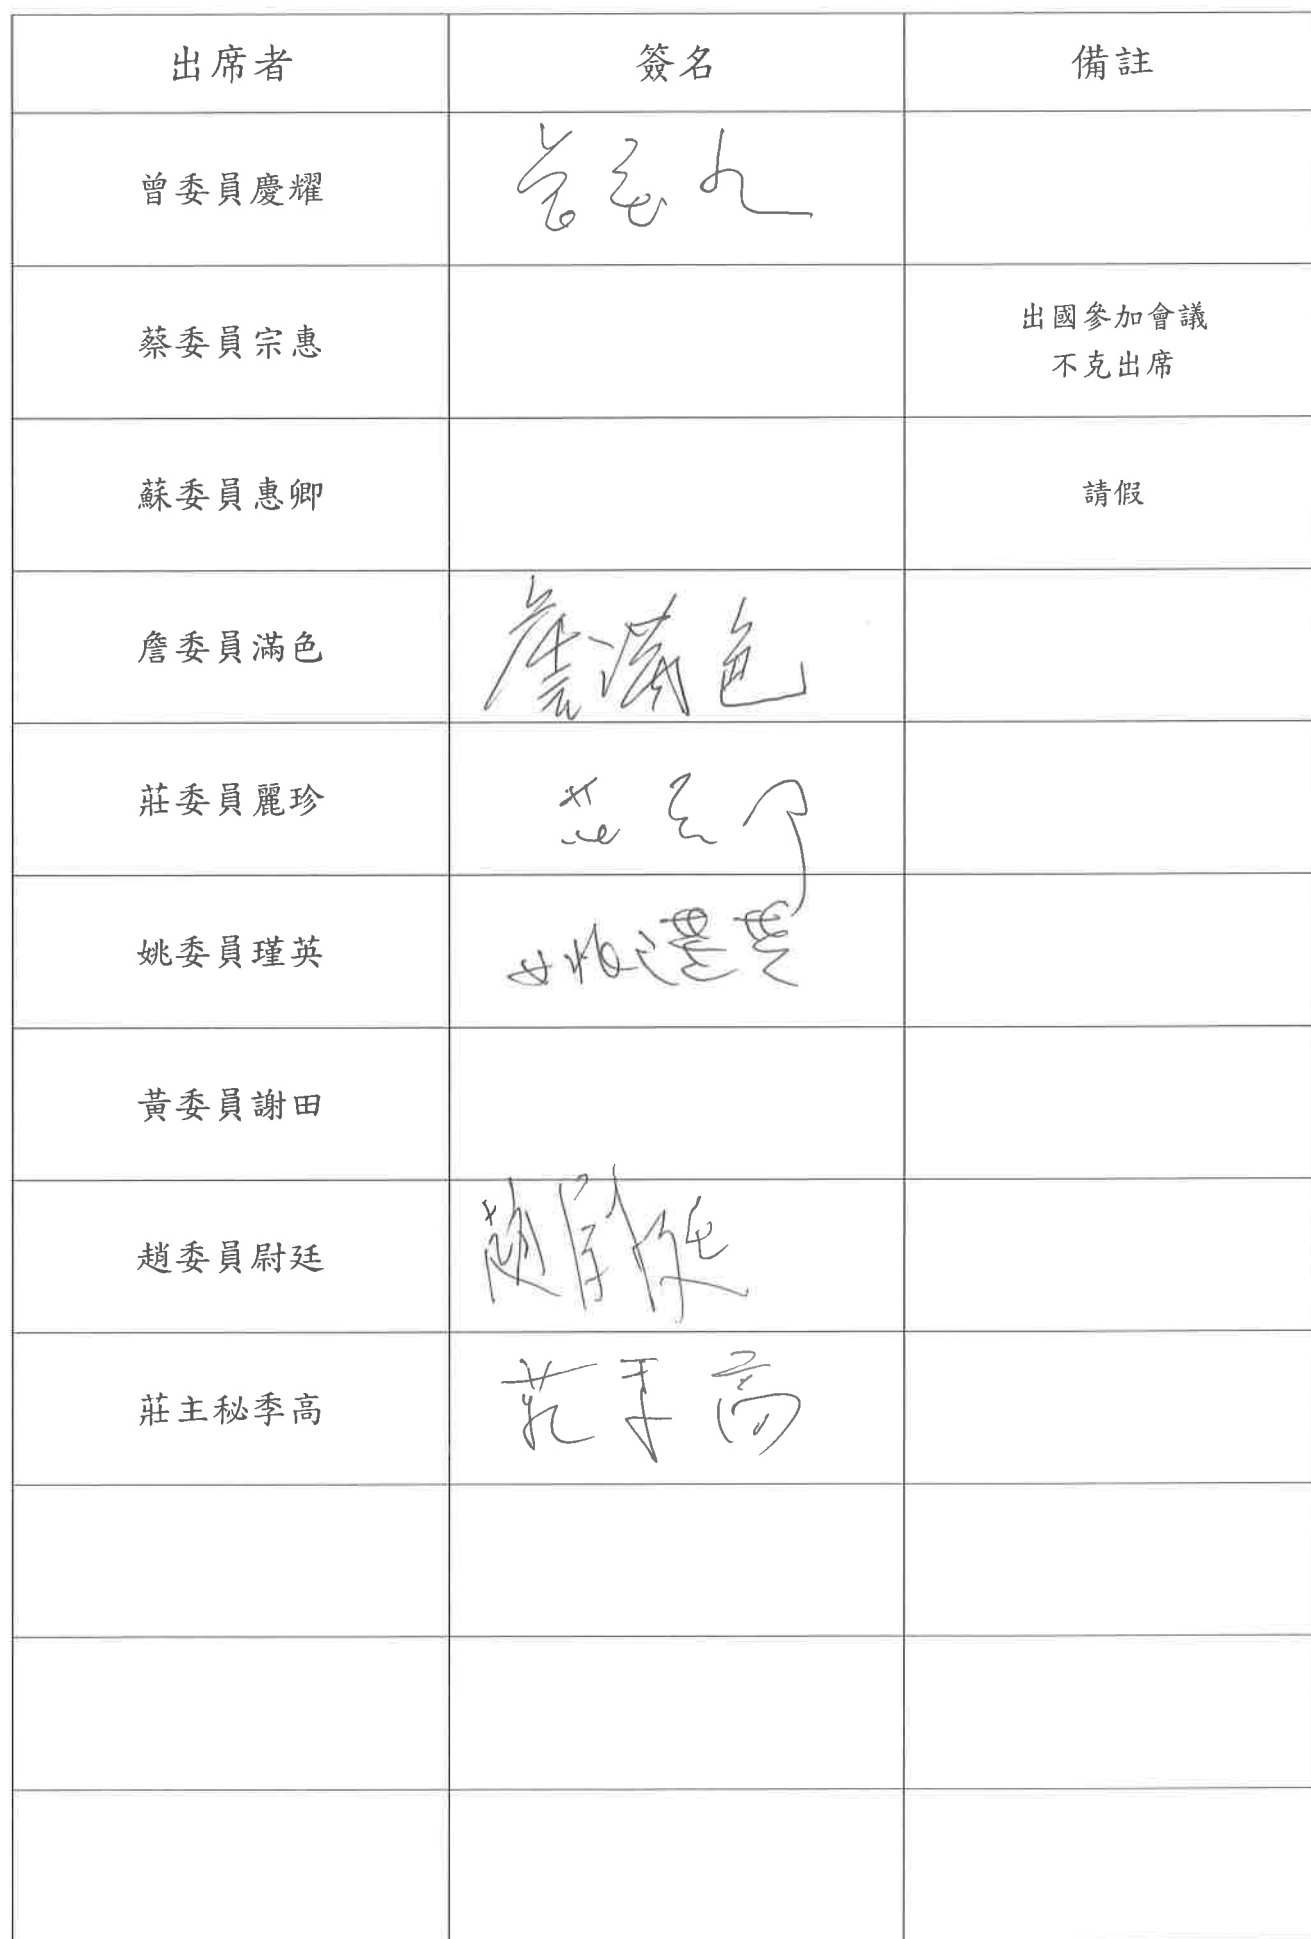 出席者 簽名 備註
曾委員慶耀
蔡委員宗惠 出國參加會議
不克出席
蘇委員惠卿 請假
詹委員滿色 詹滿色
莊委員麗珍
姚委員瑾英
黃委員謝田
趙委員尉廷 趙尉廷
莊主秘季高 莊季高